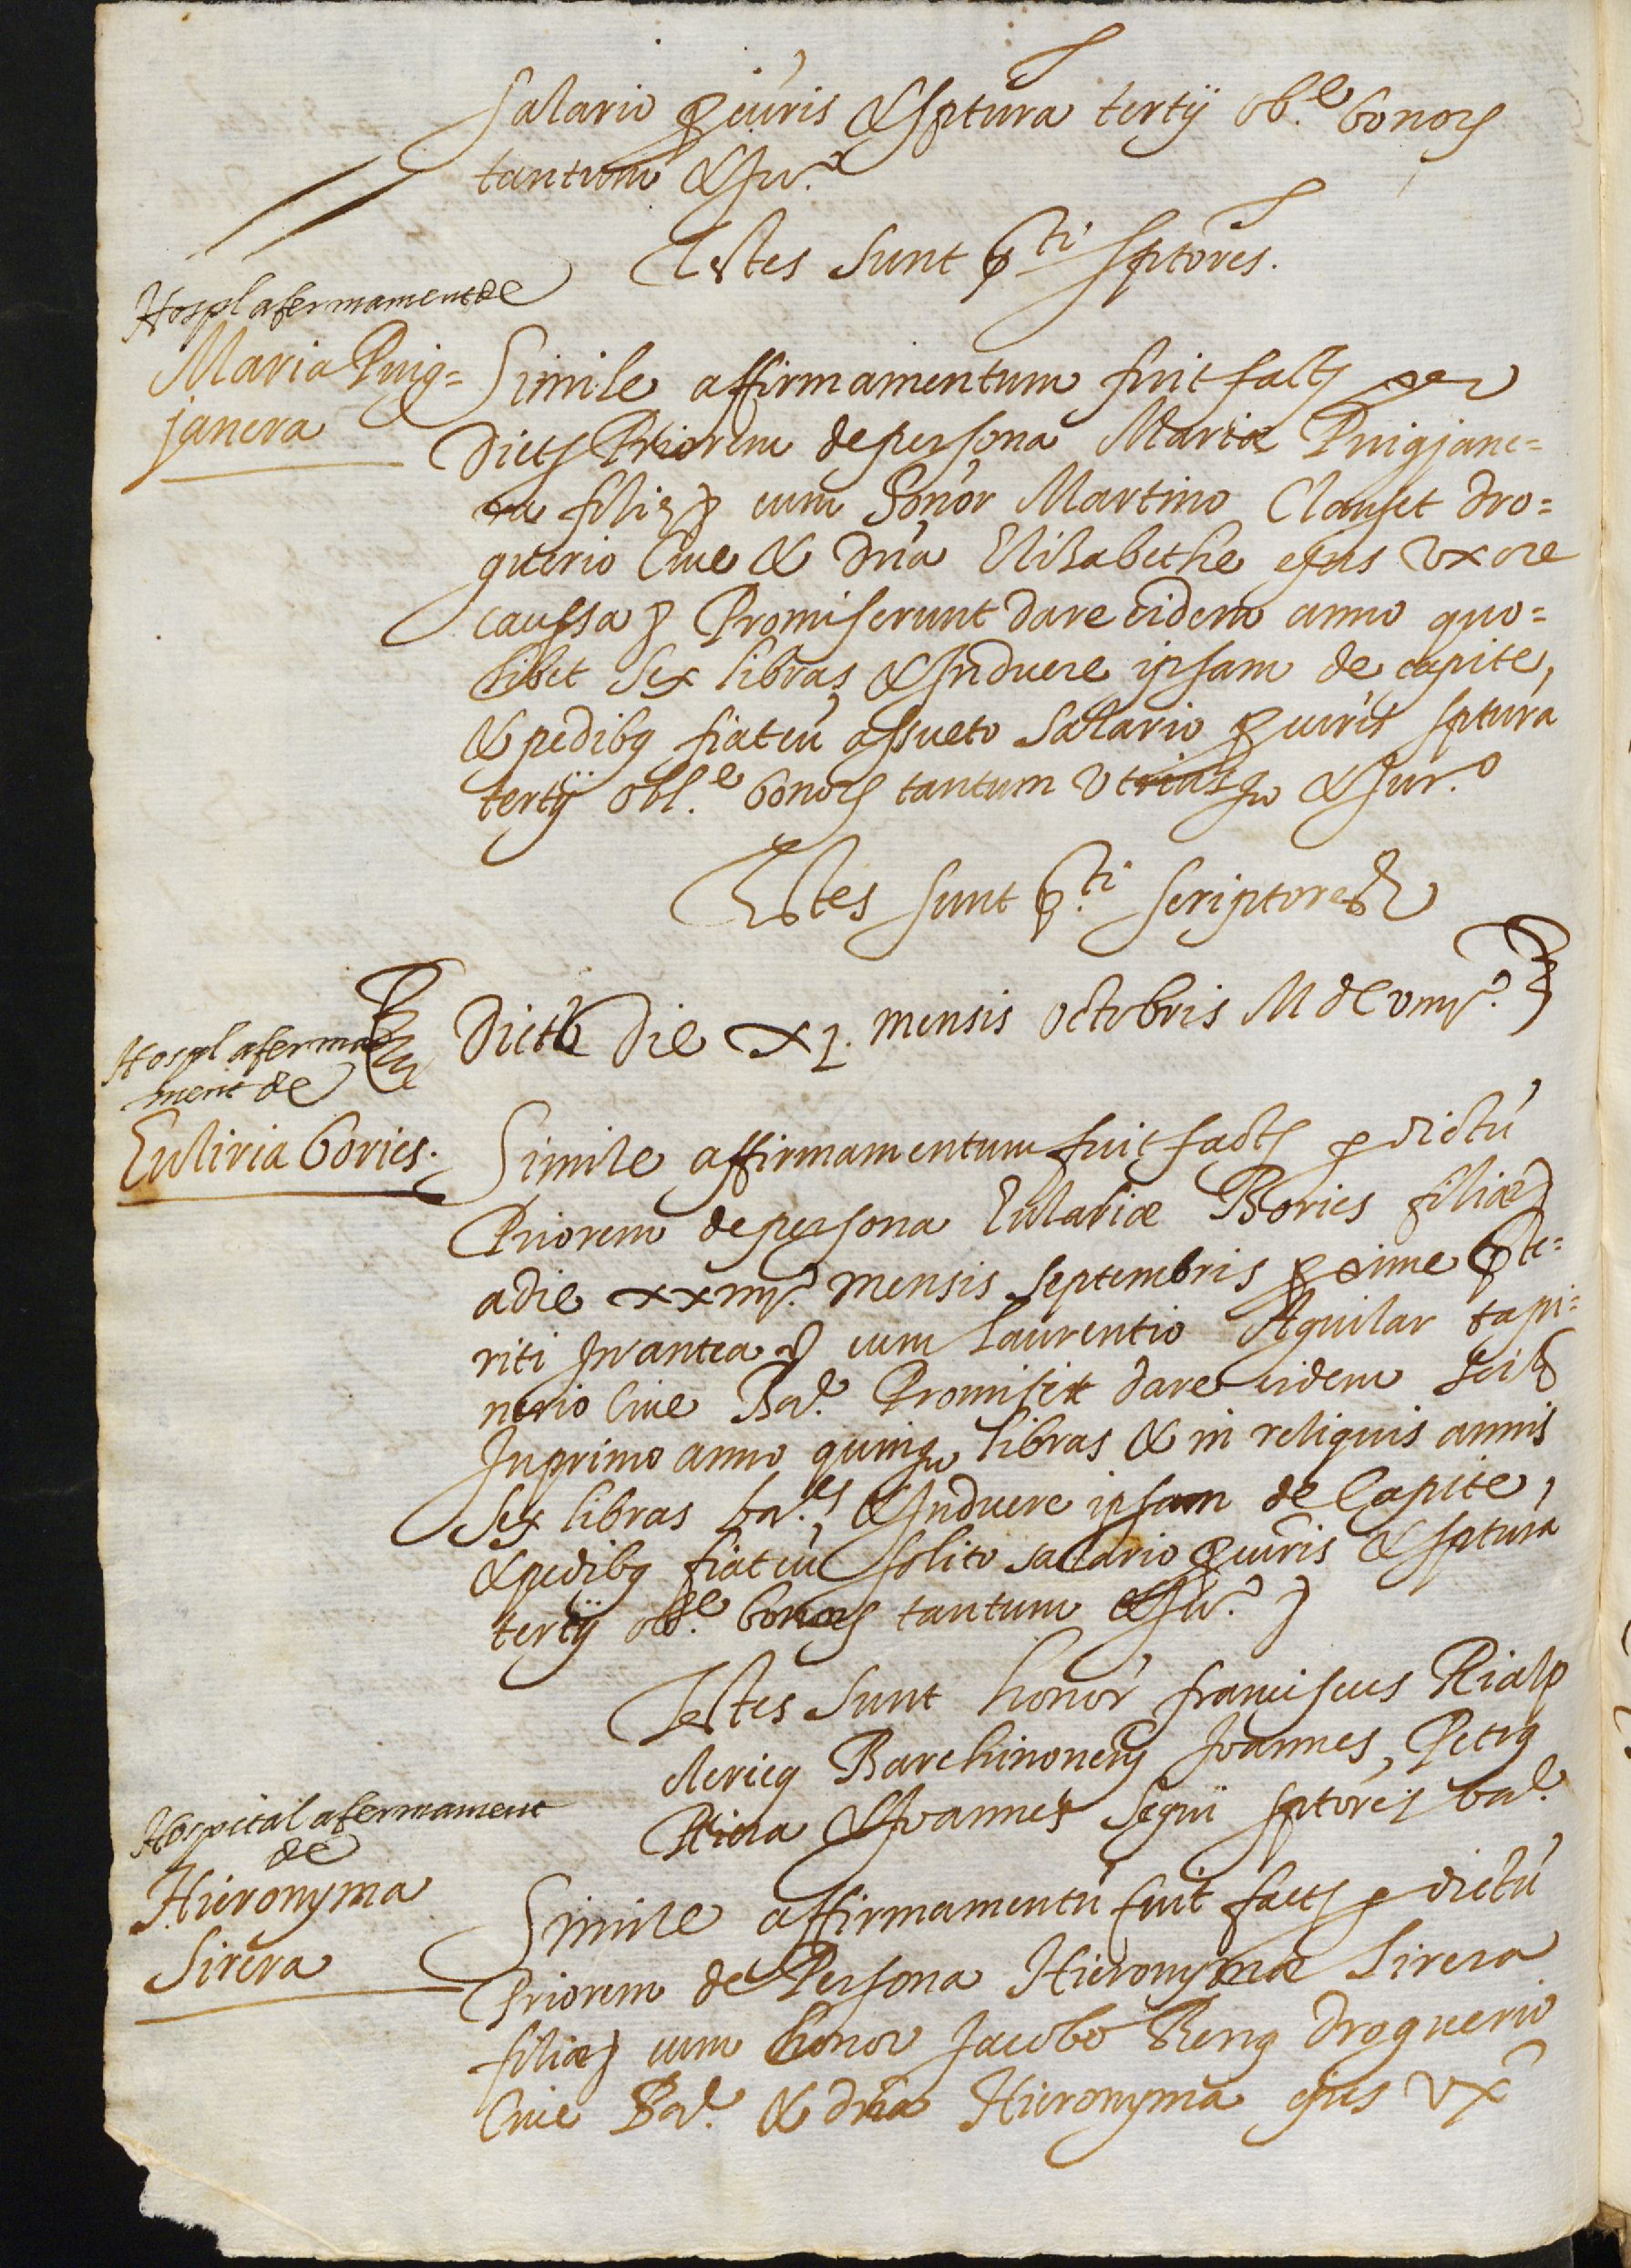 salario procuris & sptura tertij ob.e bonor
tantum & Jur.o
Testes sunt p.ti sptores.
Hospl afermament de
Maria Puig=
janera
Simile affirmamentum fuit fact per
dict Priorem de persona Mariæ Puigjane=
ra filiæ cum honor Martino Clauset dro=
guerio Cive & dña Elisabethe ejus uxore
caussa Promiserunt dare eidem anno quo=
libet sex libras & Induere ipsam de capite,
& pedibq fiat cu assueto salario procuris sptura
tertij obl.e bonor tantum utriusq & Jur.o
Testes sunt p.ti scriptores
Dicto die xj. mensis octobris M dC
Hospl aferma=
ment de
Euliria bories.
Simile affirmamentum fuit fact p dictu
Priorem de persona Eulariæ Bories filiæ
a die xxiiij.o mensis septembris proxime prete=
riti In antea cum Laurentio Aguilar tapi=
nerio Cive Bar.e Promisit dare eidem scilt
In primo anno quinq libras & in reliquis annis
sex libras bar.es & Induere ipsam de Capite,
& pedibq fiat cu solito salario procuris & sptura
tertij ob.e bonor tantum & Jur.o
Testes sunt honor franciscus Rialp
clericq Barchinonens Joannes, Petrq
Riera & Joannes Segui sptores bar.e
Hospital afermament
de
Hieronyma
Sirera
Simile affirmamentu fuit fact p dictu
Priorem de Persona Hieronymæ Sirera
filiæ cum honor Jacobo Reng droguerio
Cive Bar.e & dña Hieronyma ejus ux